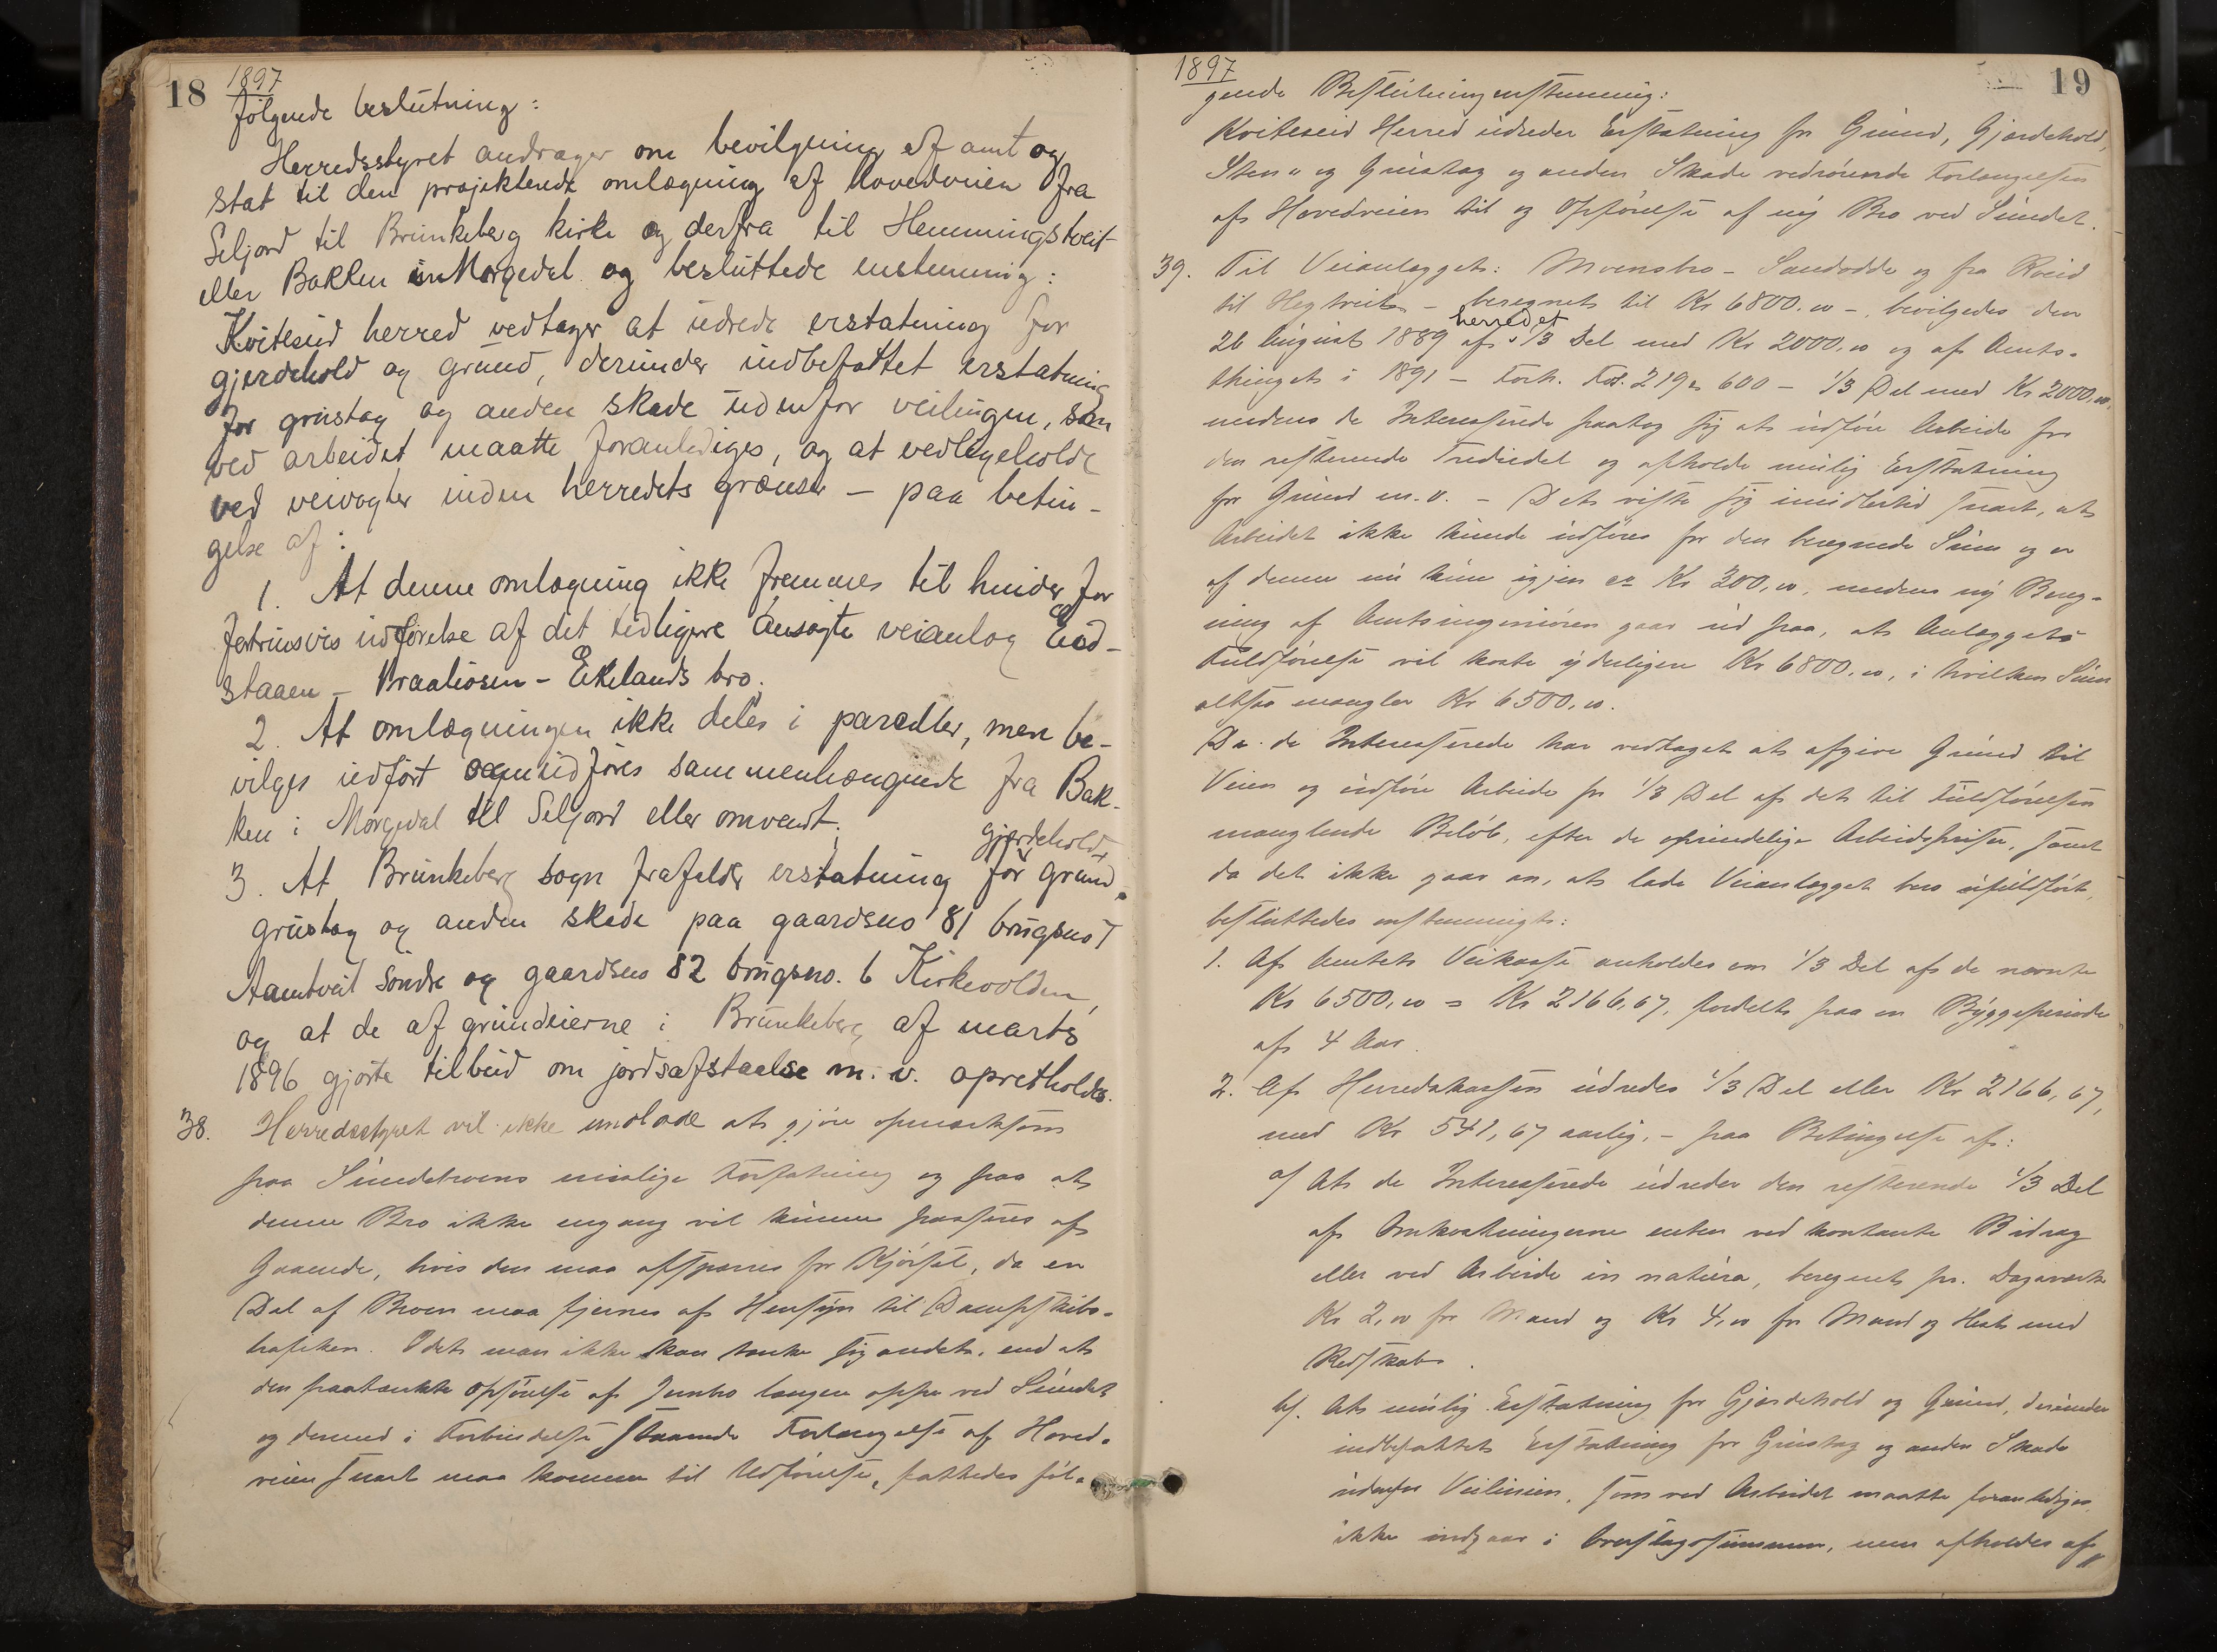 18
1897
følgende beslutning:
Herredsstyret andrager om bevilgning af amt og
stat til den projekterede omlægning af hovedveien fra
Seljord til Brunkeberg kirke og derfra til Hemmingstveit
eller Bakken i Morgedal og besluttede enstemmig:
Kviteseid herred vedtager at udrede erstatning for
gjerdehold og grund, derunder indbefattet erstatning
for grustag og anden skade udenfor veilinjen, som
ved arbeidet maatte foranlediges, og at vedligeholde
ved veivogter inden herredets grænser – paa betin-
gelse af:
1. At denne omlægning ikke fremmes til hinder for
fortrinsvis udførelse af det tidligere ansøgte veianlæg
staaen – Braaliosen – Eikelands bro.
2. At omlægningen ikke deles i parceller, men be-
vilges udført og udføres sammenhængende fra Bak-
ken i Morgedal til Seljord eller omvendt.
gjærdehold,
3. At Brunkeberg sogn frafalder erstatning for grund,
grustag og anden skade paa gaardsno 81 brugsno 1
Aamtveit søndre og gaardsno 82 brugsno. 6 Kirkevolden,
og at de af grundeierne i Brunkeberg af marts
1896 gjorte tilbud om jordsafstaaelse m. v. opretholdes.
38. Herredsstyret vil ikke undlade at gjøre opmærksom
paa Sundebroens usalige Forfatning og paa at
denne Bro ikke engang vil kunne passeres af
Gaaende, hvis den maa afspærres for Kjørsel, da en
Del af Broen maa fjernes af Hensyn til Dampskibs-
trafiken. Idet man ikke kan tænke sig andet, end at
den paatænkte Opførelse af Jernbro længere oppe ved Sundet
og dermed i Forbindelse staaende Forlængelse af Hoved-
veien snart maa komme til Udførelse, fattedes føl-
19
1897
gende Beslutning enstemmig:
Kviteseid Herred udreder Erstatning for Grund, Gjærdehold,
Sten- og Grustag og anden Skade vedrørende Forlængelsen
af Hovedveien til og Opførelse af ny Bro ved Sundet.
39. Til Veianlægget: Moensbro – Sandodde og fra Kveid
til Hegtveit – beregnet til Kr 6800.00 –, bevilgedes den
herredet
26 August 1889 af 1/3 Del med Kr 2000.00 og af Amts-
thinget i 1891 – Forh. 219 600 – 1/3 Del med Kr 2000.00,
medens de Interesserede paatog sig at udføre Arbeide for
den resterende Trediedel og afholde mulig Erstatning
for Grund m. v. – Det viste sig imidlertid snart, at
Arbeidet ikke kunde udføres for den beregnede Sum og er
af denne nu kun igjen ca Kr 300,00, medens ny Bereg-
ning af Amtsingeniøren gaar ud paa, at Anlæggets
Fuldførelse vil koste yderligere Kr 6800,00, i hvilken Sum
altsaa mangler Kr 6500,00.
Da de Interesserede har vedtaget at afgive Grund til
Veien og udføre Arbeide for 1/3 Del af det til Fuldførelsen
manglende Beløb, efter de oprindelige Arbeidspriser, samt
da det ikke gaar an, at lade Veianlægget bero ufuldført,
besluttedes enstemmigt:
1. Af Amtets Veikasse anholdes om 1/3 Del af de nævnte
Kr 6500,00 = Kr 2166,67, fordelt paa en Byggeperiode
af 4 Aar.
2. Af Herredskassen udredes 1/3 Del eller Kr 2166,67,
med Kr 541,67 aarlig, – paa Betingelse af:
a) At de Interesserede udreder den resterende 1/3 Del
af Omkostningerne enten ved kontante Bidrag
eller ved Arbeide in natura, beregnet pr. Dagsværk
Kr 2,00 for Mand og Kr 4,00 for Mand og Hest med
Redskab.
b). At mulig Erstatning for Gjærdehold og Grund, derunder
indbefattet Erstatning for Grustag og anden Skade
udenfor Veilinien, som ved Arbeidet maatte foranlediges,
ikke indgaar i Overslagssummen, men afholdes af